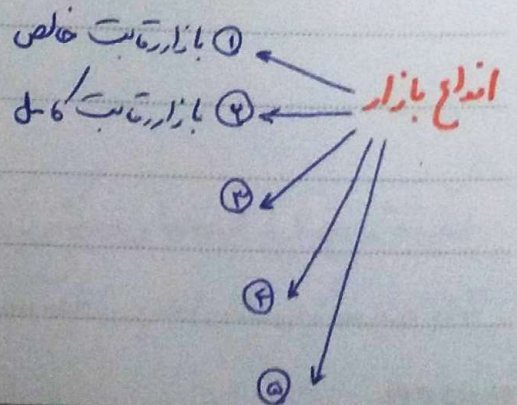 انواع بازار
① بازار رقابت خالص
② بازار رقابت کامل
③
④
⑤